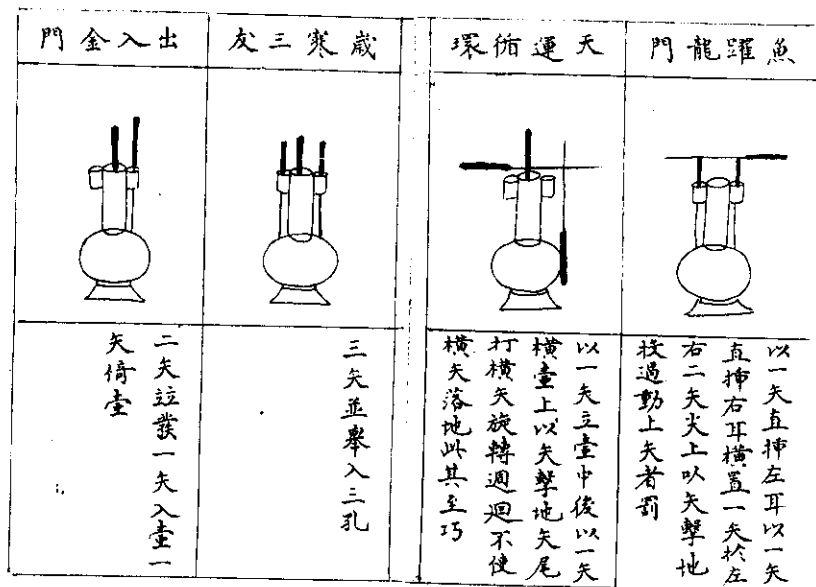 魚躍龍門
以一矢直揷左耳以一矢
直揷右耳橫置一矢扵左
右二矢尖上以矢擊地
投過動上矢者罰
天運循環
以一矢立壷中後以一矢
橫壷上以矢擊地矢尾
打橫矢旋轉週迴不使
橫矢落地此其至巧
歲寒三友
三矢並舉入三孔
出入金門
二矢竝發一矢入壷一
矢倚壷